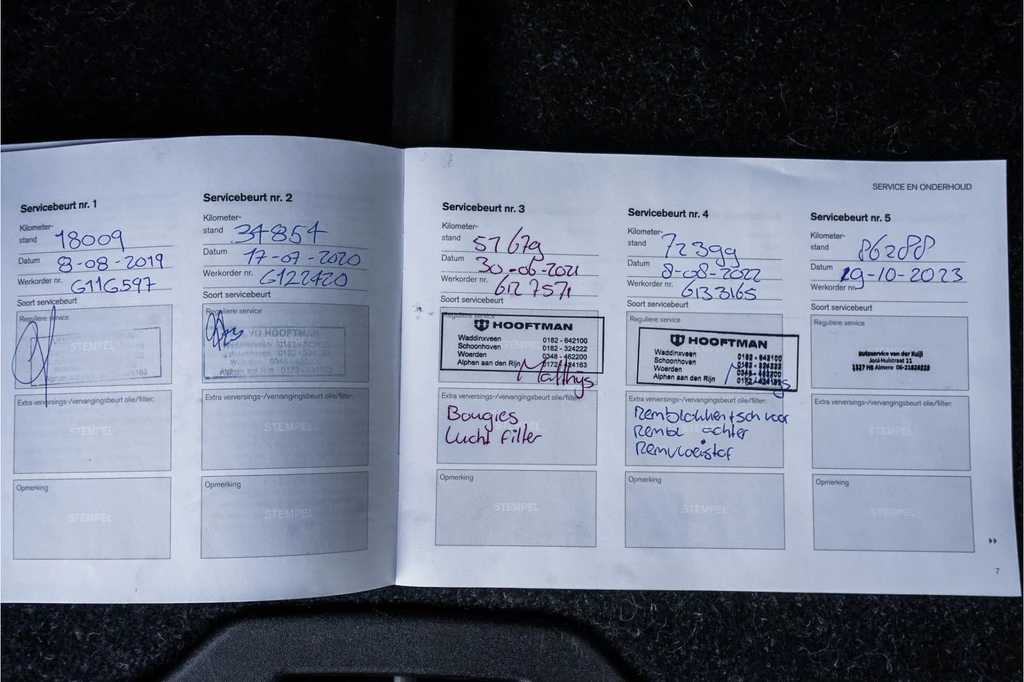 SERVICE EN ONDERHOUD
Servicebeurt nr. 1
Kilometer-
stand 18009
Datum 8-08-2019
Werkorder nr. G116597
Soort servicebeurt
Reguliere service
STEMPEL
Extra verversings-/vervangingsbeurt olie/filter:
STEMPEL
Opmerking
STEMPEL
Servicebeurt nr. 2
Kilometer-
stand 34854
Datum 17-07-2020
Werkorder nr. G122420
Soort servicebeurt
Reguliere service
HOOFTMAN
Alphen aan den Rijn
Extra verversings-/vervangingsbeurt olie/filter:
STEMPEL
Opmerking
STEMPEL
Servicebeurt nr. 3
Kilometer-
stand 51679
Datum 30-06-2021
Werkorder nr. 6127571
Soort servicebeurt
Reguliere service
HOOFTMAN
Waddinxveen 0182 - 642100
Schoonhoven 0182 - 324222
Woerden 0348 - 462200
Alphen aan den Rijn 0172
Matthys
Extra verversings-/vervangingsbeurt olie/filter:
Bougies
Lucht filter
Opmerking
STEMPEL
Servicebeurt nr. 4
Kilometer-
stand 72399
Datum 8-08-2022
Werkorder nr. G133165
Soort servicebeurt
Reguliere service
HOOFTMAN
Waddinxveen 0182 - 642100
Schoonhoven 0182 - 324222
Woerden
Alphen aan den Rijn
Extra verversings-/vervangingsbeurt olie/filter:
Remblokken + sch voor
Rembl achter
Remvloeistof
Opmerking
STEMPEL
Servicebeurt nr. 5
Kilometer-
stand 86288
Datum 19-10-2023
Werkorder nr.
Soort servicebeurt
Reguliere service
autoservice van der Kuijl
Jool Hulstraat 11
1327 HB Almere 06-21824228
Extra verversings-/vervangingsbeurt olie/filter:
STEMPEL
Opmerking
STEMPEL
7